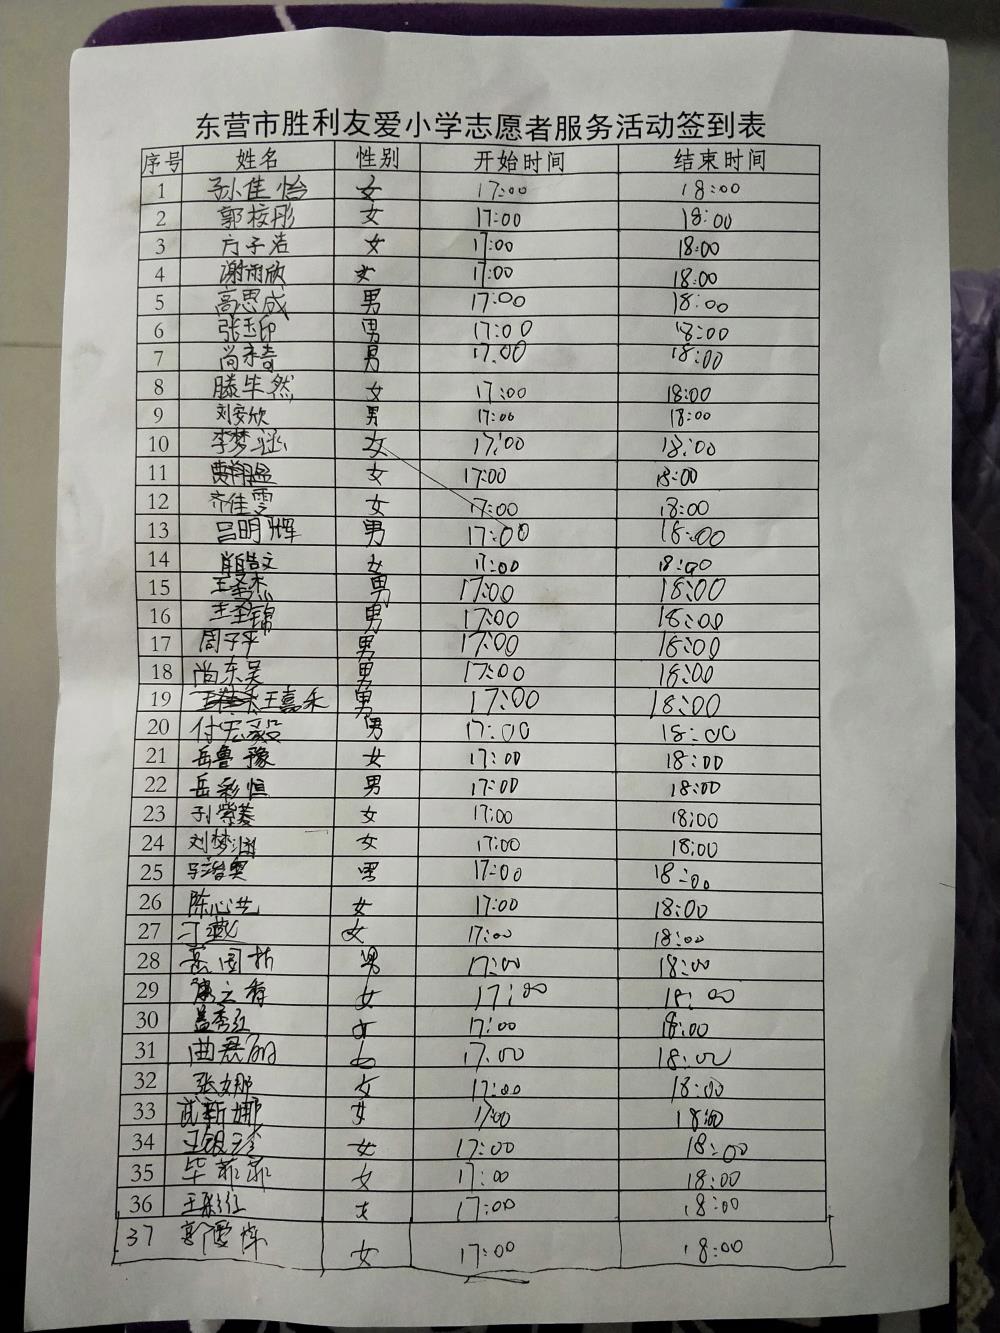 东营市胜利友爱小学志愿者服务活动签到表
序号 姓名 性别 开始时间 结束时间
1 孙佳怡 女 17:00 18:00
2 郭校彤 女 17:00 18:00
3 方子浩 女 17:00 18:00
4 谢雨欣 女 17:00 18:00
5 高思成 男 17:00 18:00
6 张玉印 男 17:00 18:00
7 尚 男 17:00 18:00
8 滕牛然 女 17:00 18:00
9 刘安欣 男 17:00 18:00
10 李梦涵 女 17:00 18:00
11 女 17:00 18:00
12 齐佳雯 女 17:00 18:00
13 吕明辉 男 17:00 18:00
14 女 17:00 18:00
15 王圣杰 男 17:00 18:00
16 王圣锦 男 17:00 18:00
17 周子平 男 17:00 18:00
18 尚东吴 男 17:00 18:00
19 王嘉禾 男 17:00 18:00
20 付宏毅 男 17:00 18:00
21 岳鲁豫 女 17:00 18:00
22 岳彩恒 男 17:00 18:00
23 紫菱 女 17:00 18:00
24 刘梦涵 女 17:00 18:00
25 男 17:00 18:00
26 陈心艺 女 17:00 18:00
27 刁 女 17:00 18:00
28 国栋 男 17:00 18:00
29 女 17:00 18:00
30 盖秀红 女 17:00 18:00
31 曲君丽 女 17:00 18:00
32 张娜 女 17:00 18:00
33 新娜 女 17:00 18:00
34 王银珍 女 17:00 18:00
35 毕菲菲 女 17:00 18:00
36 王彩红 女 17:00 18:00
37 郭爱 女 17:00 18:00